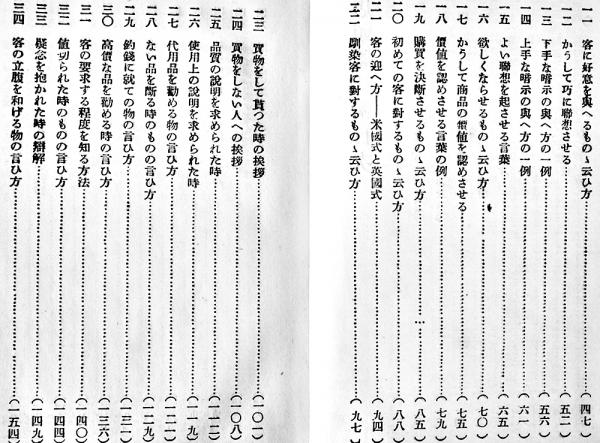 一一 客に好意を與へるものゝ云ひ方……(四七)
一二 かうして巧に聯想させる……(五二)
一三 下手な暗示の與へ方の一例……(五六)
一四 上手な暗示の與へ方の一例……(六一)
一五 よい聯想を起させる言葉……(六五)
一六 欲しくならせるものゝ云ひ方……(七〇)
一七 かうして商品の價値を認めさせる……(七五)
一八 價値を認めさせる言葉の例……(七九)
一九 購買を決斷させるものゝ云ひ方……(八五)
二〇 初めての客に對するものゝ云ひ方……(八八)
二一 客の迎へ方――米國式と英國式……(九四)
二二 馴染客に對するものゝ云ひ方……(九七)
二三 買物をして貰つた時の挨拶……(一〇一)
二四 買物をしない人への挨拶……(一〇八)
二五 品質の說明を求められた時……(一一二)
二六 使用上の說明を求められた時……(一一九)
二七 代用品を勸める物の言ひ方……(一二一)
二八 ない品を斷る時のものの言ひ方……(一二九)
二九 釣錢に就ての物の言ひ方……(一三一)
三〇 高價な品を勸める時の言ひ方……(一三六)
三一 客の要求する程度を知る方法……(一四〇)
三二 値切られた時のものの言ひ方……(一四四)
三三 疑念を抱かれた時の辯解……(一四九)
三四 客の立腹を和げる物の言ひ方……(一五四)